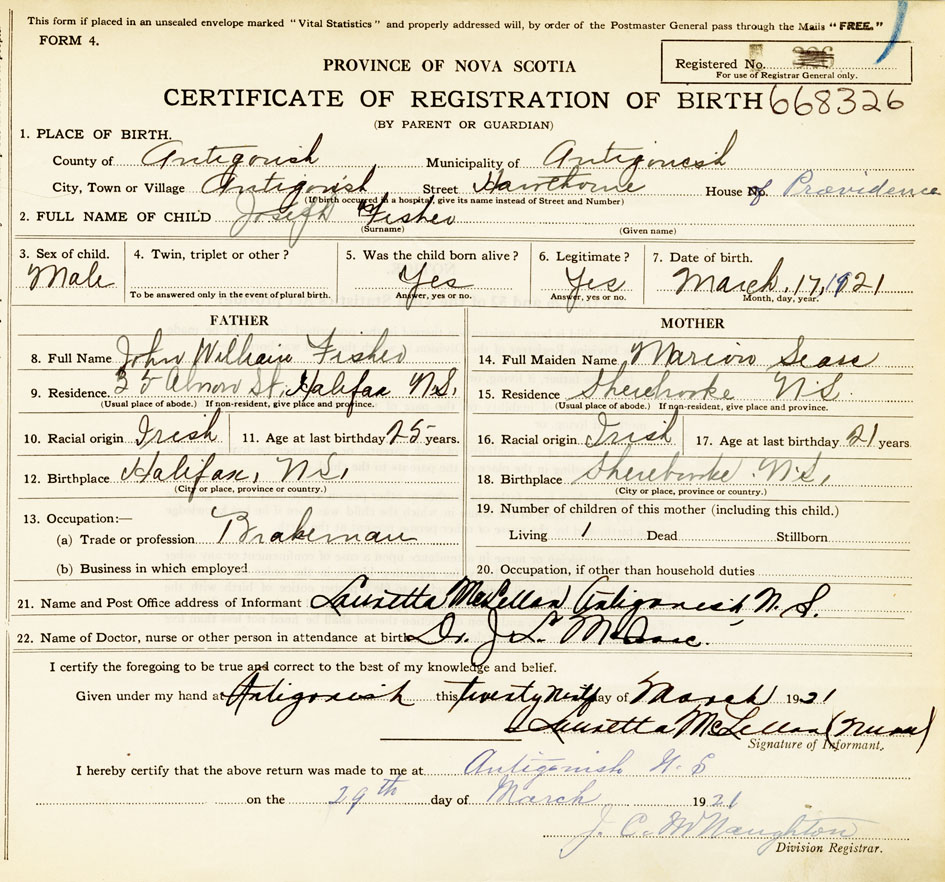 This form if placed in an unsealed envelope marked "Vital Statistics" and properly addressed will, by order of the Postmaster General pass through the Mails "FREE."
FORM 4.
Registered No.
For use of Registrar General only.
PROVINCE OF NOVA SCOTIA
CERTIFICATE OF REGISTRATION OF BIRTH 668326
(BY PARENT OR GUARDIAN)
1. PLACE OF BIRTH.
County of Antigonish Municipality of Antigonish
City, Town or Village Antigonish Street Hawthorne House No. of Providence
(If birth occurred in a hospital, give its name instead of Street and Number)
2. FULL NAME OF CHILD Joseph Fisher
(Surname) (Given name)
3. Sex of child. 4. Twin, triplet or other? 5. Was the child born alive? 6. Legitimate? 7. Date of birth.
Male Yes Yes March, 17, 1921
To be answered only in the event of plural birth. Answer, yes or no. Answer, yes or no. Month, day, year.
FATHER
8. Full Name John William Fisher
9. Residence. 35 Almon St, Halifax N.S.
(Usual place of abode.) If non-resident, give place and province.
10. Racial origin Irish 11. Age at last birthday 25 years.
12. Birthplace Halifax, N.S.
(City or place, province or country.)
13. Occupation:—
(a) Trade or profession Brakeman
(b) Business in which employed
MOTHER
14. Full Maiden Name Marion
15. Residence Sherbrooke N.S.
(Usual place of abode.) If non-resident, give place and province.
16. Racial origin Irish 17. Age at last birthday 21 years
18. Birthplace Sherbrooke N.S.
(City or place, province or country.)
19. Number of children of this mother (including this child.)
Living 1 Dead Stillborn
20. Occupation, if other than household duties
21. Name and Post Office address of Informant Lauretta McLellan Antigonish N. S.
22. Name of Doctor, nurse or other person in attendance at birth Dr. J. L. McIsaac
I certify the foregoing to be true and correct to the best of my knowledge and belief.
Given under my hand at Antigonish this day of March 1921
Lauretta McLellan (Nurse)
Signature of Informant.
I hereby certify that the above return was made to me at Antigonish N. S
on the 29th day of March 1921
J. C. McNaughton
Division Registrar.